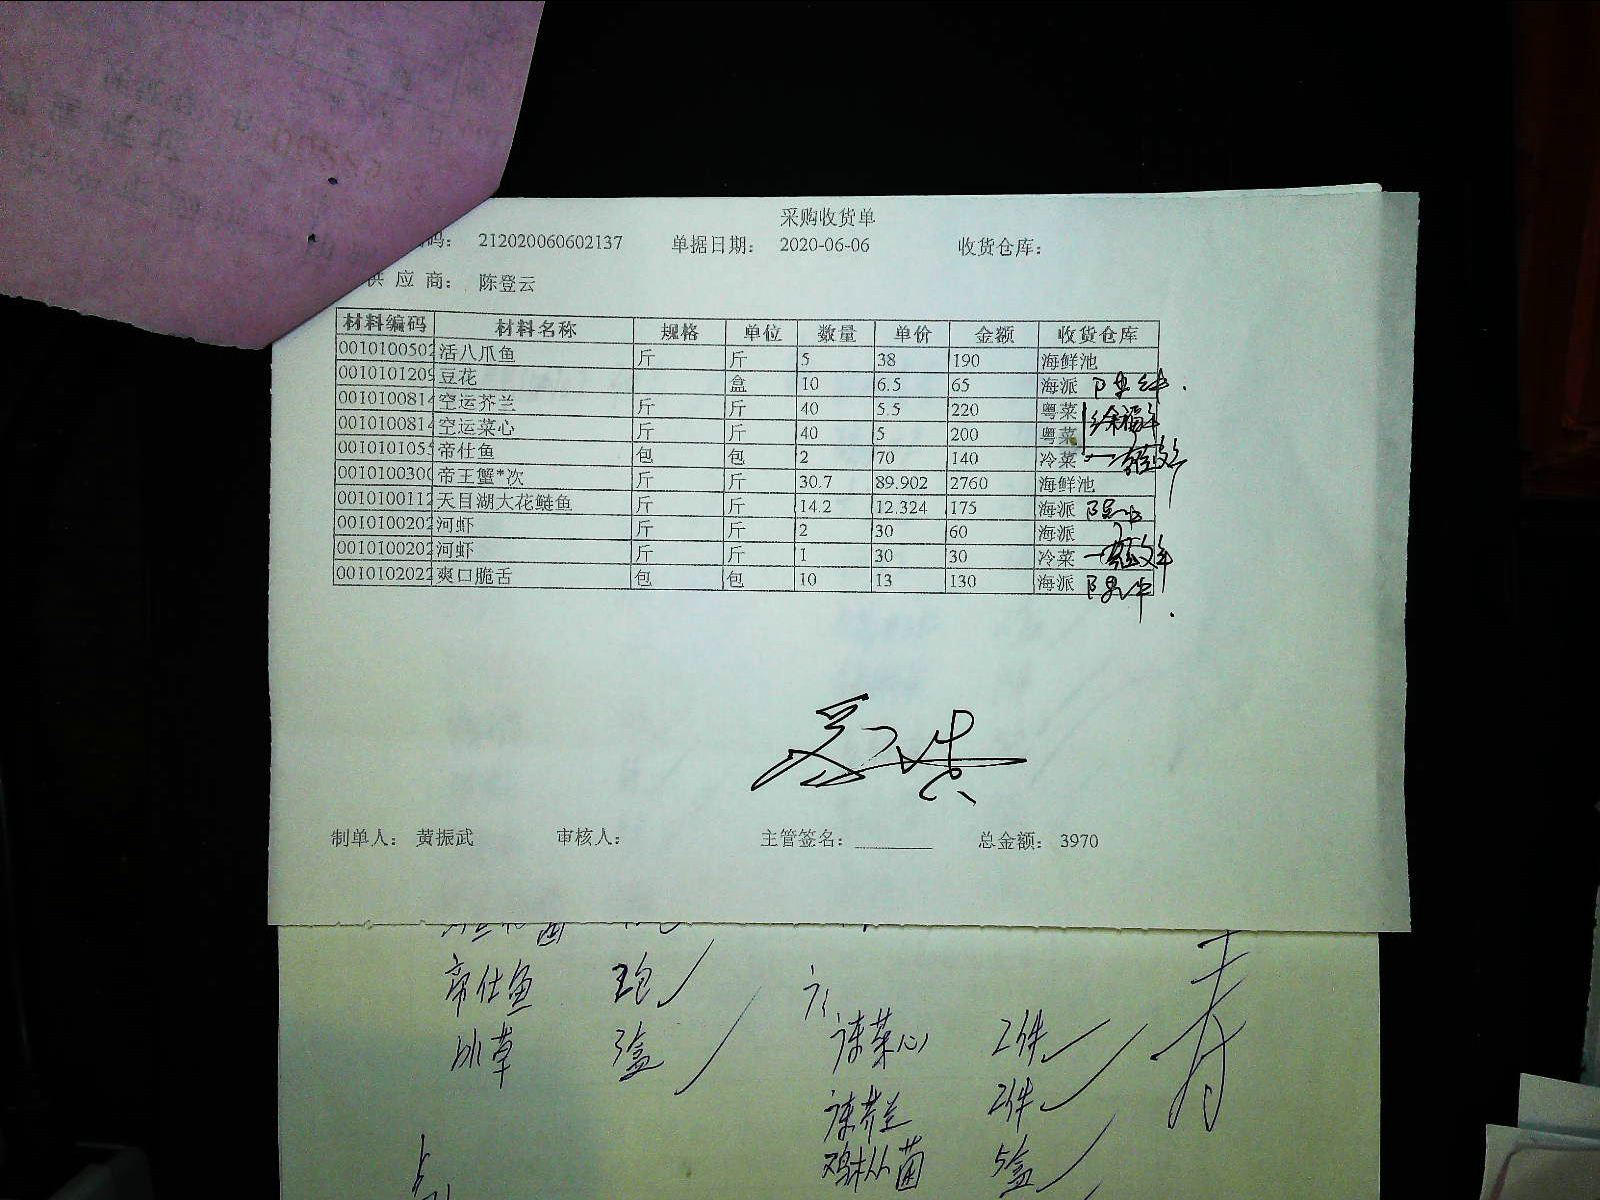 采购收货单
码： 212020060602137 单据日期： 2020-06-06 收货仓库：
供 应 商： 陈登云
材料编码 材料名称 规格 单位 数量 单价 金额 收货仓库
0010100502 活八爪鱼 斤 斤 5 38 190 海鲜池
001010120 豆花 盒 10 6.5 65 海派
001010081 空运芥兰 斤 斤 40 5.5 220 粤菜
001010081 空运菜心 斤 斤 40 5 200 粤菜
001010105 帝仕鱼 包 包 2 70 140 冷菜
001010030 帝王蟹*次 斤 斤 30.7 89.902 2760 海鲜池
001010011 天目湖大花鲢鱼 斤 斤 14.2 12.324 175 海派
001010020 河虾 斤 斤 2 30 60 海派
001010020 河虾 斤 斤 1 30 30 冷菜
001010202 爽口脆舌 包 包 10 13 130 海派
制单人： 黄振武 审核人： 主管签名： 总金额： 3970
帝仕鱼 2包
冰草 3盒
菜心 2件
2件
鸡枞菌 5盒